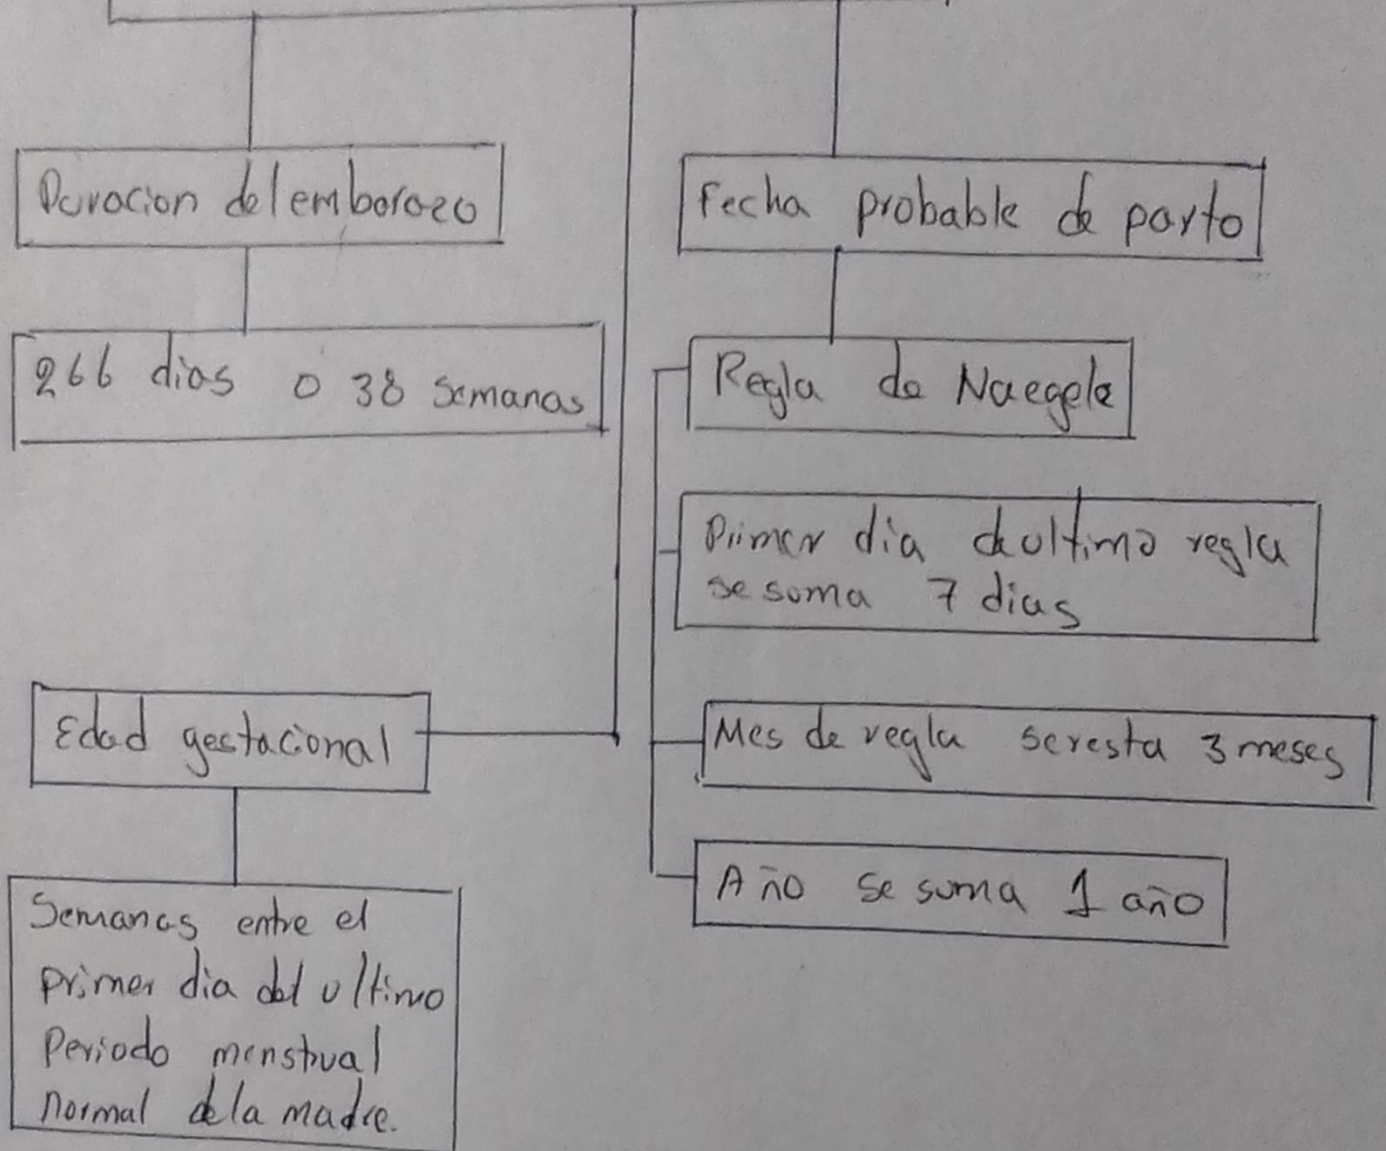 Duracion del embarazo
266 dias o 38 semanas
Edad gestacional
Semanas entre el
primer dia del ultimo
Periodo menstrual
normal de la madre.
Fecha probable de parto
Regla de Naegele
Primer dia de ultima regla
se suma 7 dias
Mes de regla se resta 3 meses
Año se suma 1 año